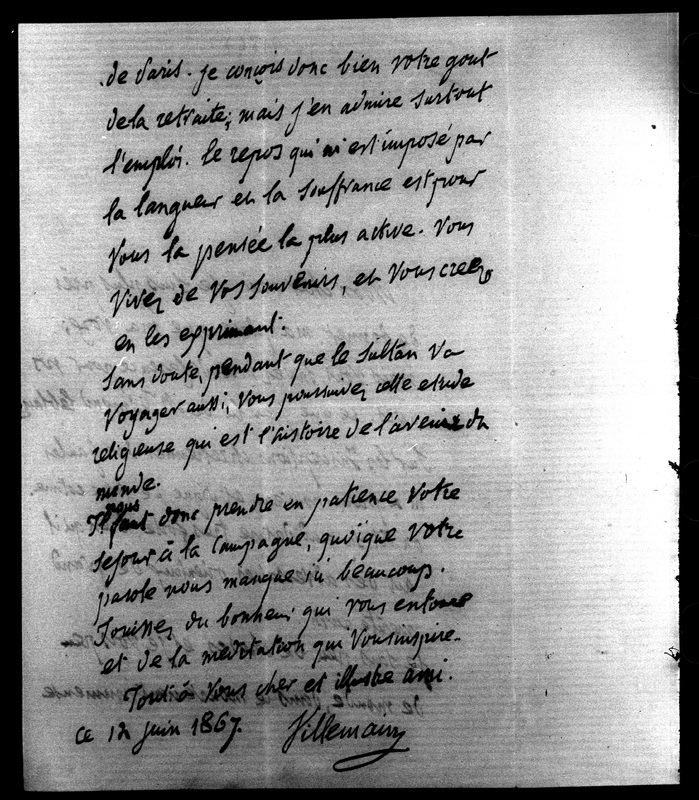 de Paris. je conçois donc bien votre gout
de la retraite; mais j'en admire surtout
l'emploi. le repos qui est imposé par
la langueur et la souffrance est pour
vous la pensée la plus active. Vous
vivez de vos souvenirs, et vous creez
en les exprimant.
Sans doute, pendant que le Sultan va
voyager aussi, vous poursuivez cette etude
religieuse qui est l'histoire de l'avenir du
monde.
nous
Il faut donc prendre en patience votre
sejour à la campagne, quoique votre
parole nous manque ici beaucoup.
Jouissez du bonheur qui vous entoure
et de la meditation qui vous inspire.
Tout à vous cher et illustre ami.
ce 12 juin 1867. Villemain